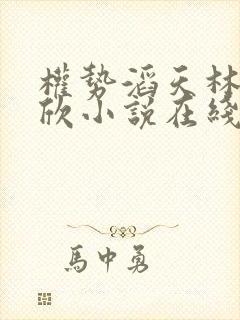 權勢滔天林
欣小說在綫
馬中勇